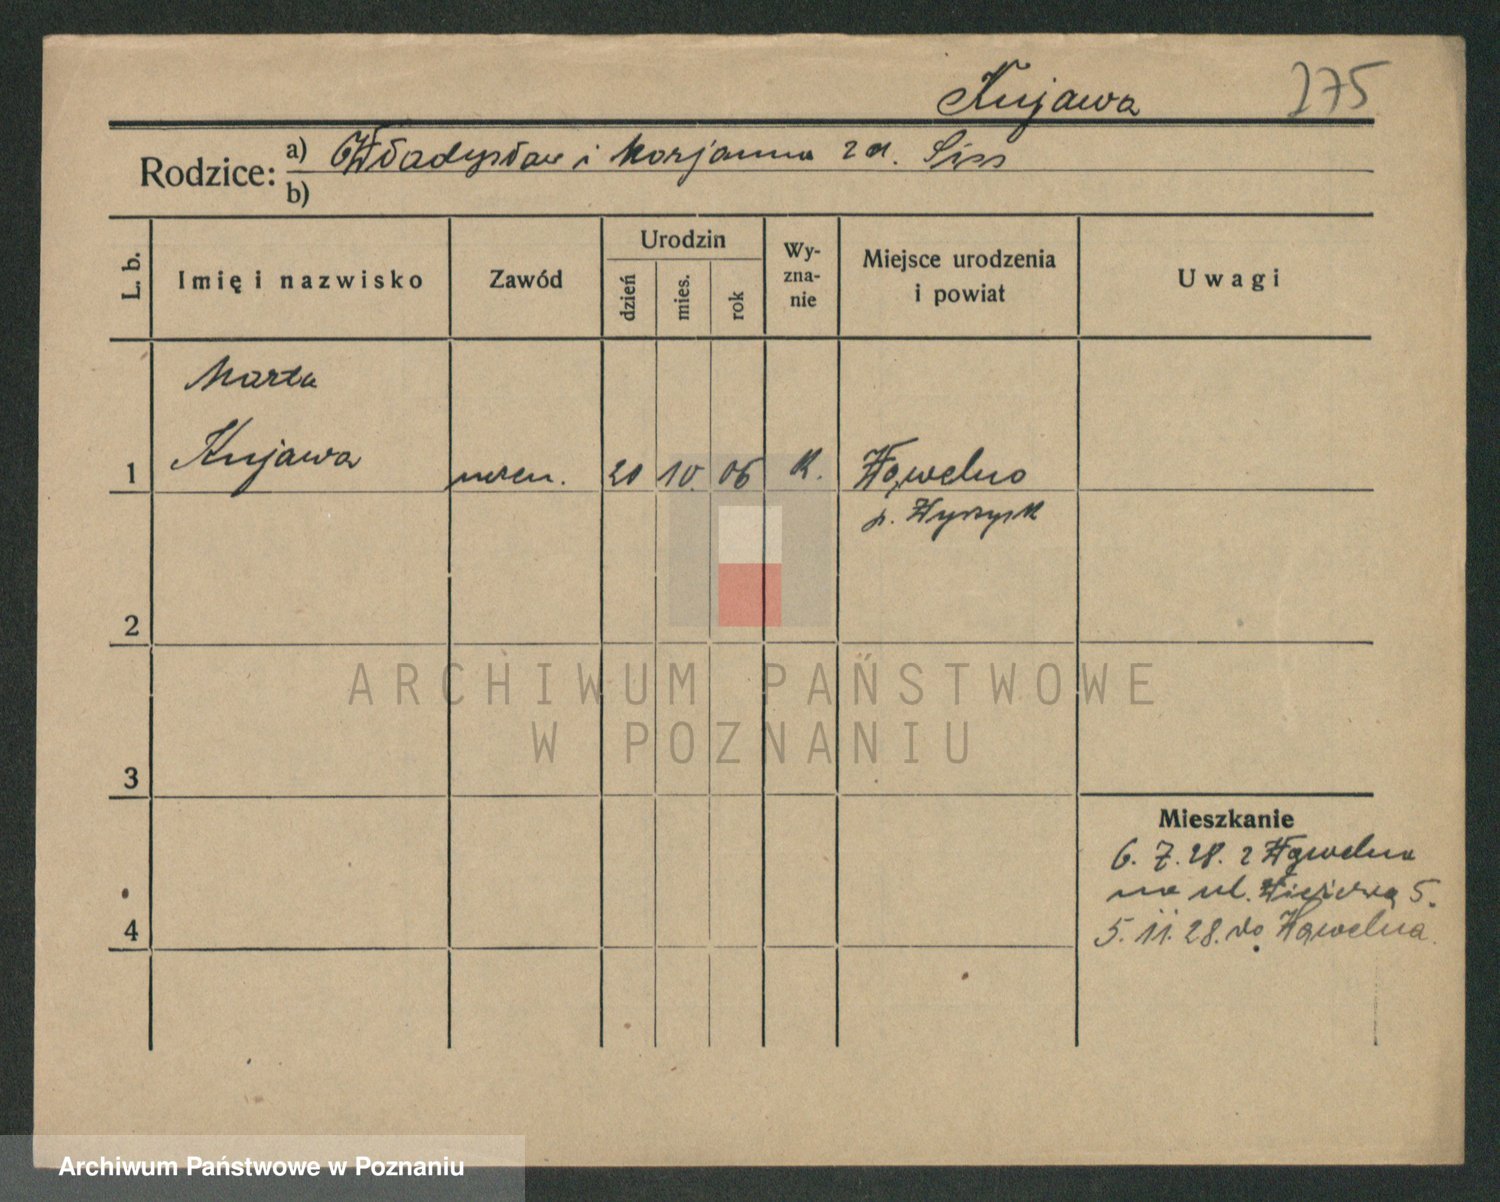 Kujawa 275
Rodzice: a) Władysław i Marjanna zd. Siss
b)
L. b.
Imię i nazwisko
Zawód
Urodzin
dzień
mies.
rok
Wy-
zna-
nie
Miejsce urodzenia
i powiat
Uwagi
Marta
1 Kujawa 20 10. 06 k. Wąwelno
p. Wyrzysk
2
3
4
Mieszkanie
6. 7. 28. z Wąwelna
na ul. 5.
5. 11. 28. do Wąwelna.
ARCHIWUM PAŃSTWOWE
W POZNANIU
Archiwum Państwowe w Poznaniu